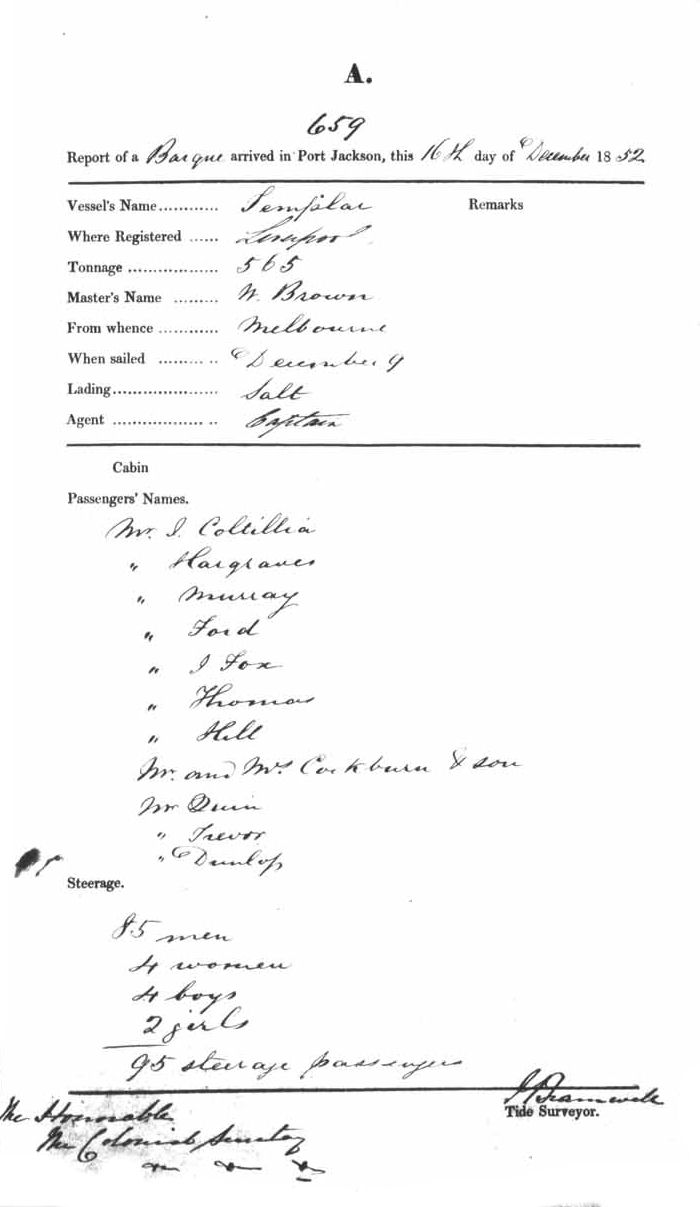 A.
659
Report of a Barque arrived in Port Jackson, this 16th day of December 1852
Vessel's Name............ Templar Remarks
Where Registered ...... Liverpool
Tonnage .................. 565
Master's Name ......... W. Brown
From whence ............ Melbourne
When sailed ......... .. December 9
Lading..................... Salt
Agent .................. .. Captain
Cabin
Passengers' Names.
Mr. I. Coltillia
" Hargraves
" Murray
" Ford
" I Fox
" Thomas
" Hill
Mr. and Mrs Cockburn & son
Mr Quin
" Trevor
" Dunlop
Steerage.
85 men
4 women
4 boys
2 girls
95 steerage passengers
Tide Surveyor.
The Honorable
The Colonial Secretary